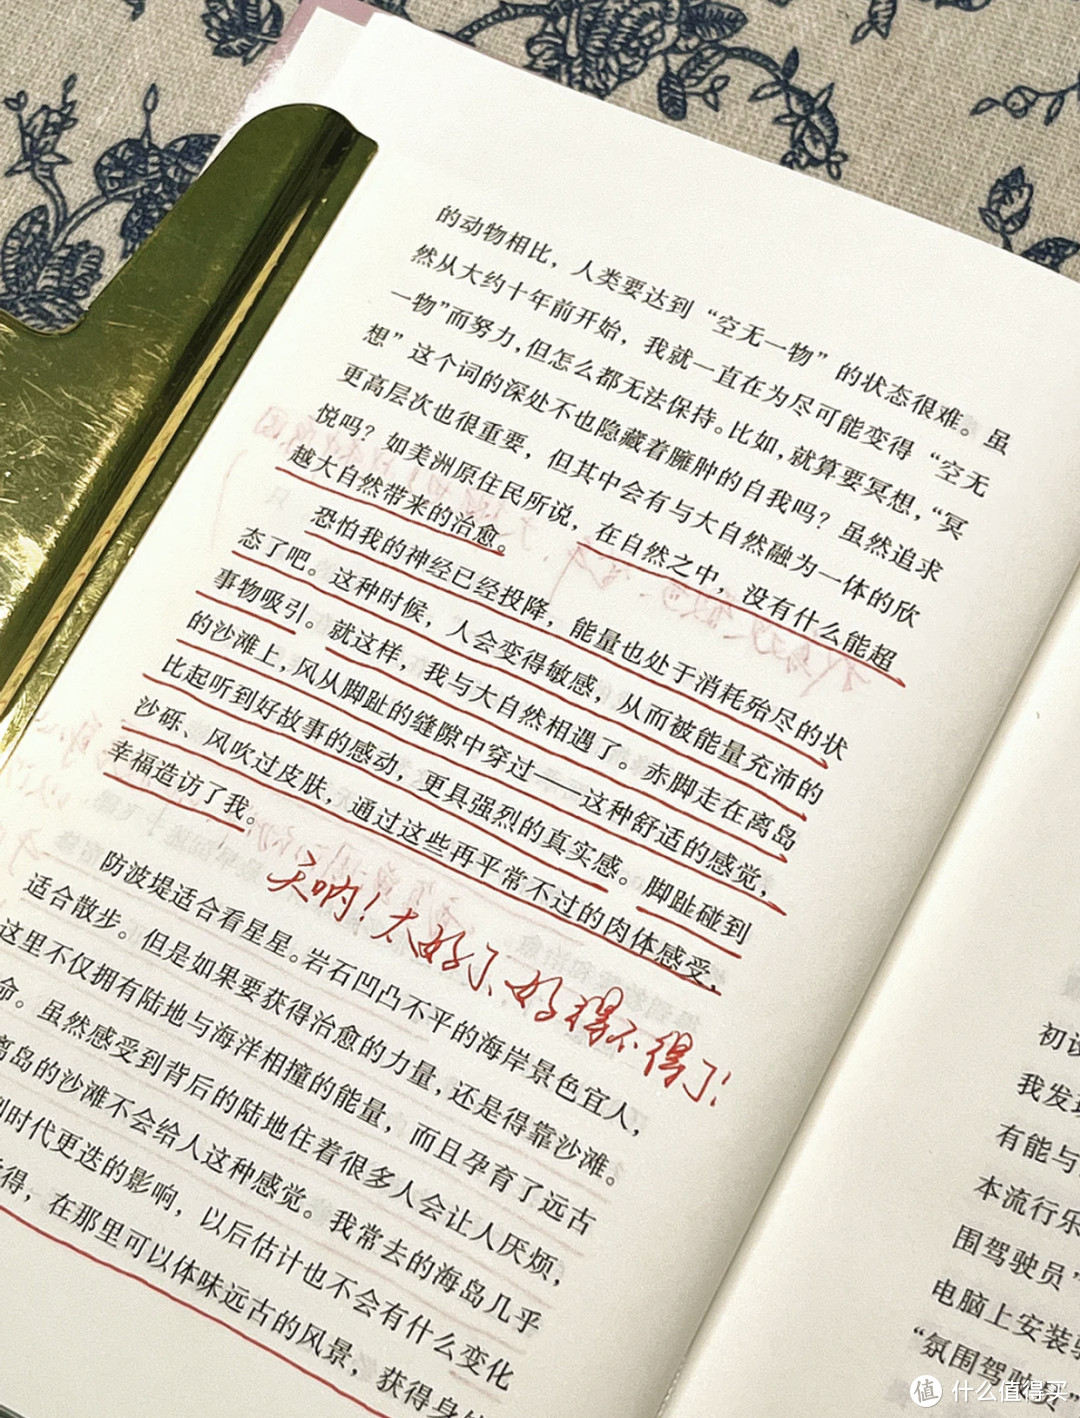 的动物相比，人类要达到“空无一物”的状态很难。虽
然从大约十年前开始，我就一直在为尽可能变得“空无
一物”而努力，但怎么都无法保持。比如，就算要冥想，“冥
想”这个词的深处不也隐藏着臃肿的自我吗？虽然追求
更高层次也很重要，但其中会有与大自然融为一体的欣
悦吗？如美洲原住民所说，在自然之中，没有什么能超
越大自然带来的治愈。
恐怕我的神经已经投降，能量也处于消耗殆尽的状
态了吧。这种时候，人会变得敏感，从而被能量充沛的
事物吸引。就这样，我与大自然相遇了。赤脚走在离岛
的沙滩上，风从脚趾的缝隙中穿过——这种舒适的感觉，
比起听到好故事的感动，更具强烈的真实感。脚趾碰到
沙砾、风吹过皮肤，通过这些再平常不过的肉体感受，
幸福造访了我。
天呐！太好了、好得不得了！
防波堤适合看星星。岩石凹凸不平的海岸景色宜人，
适合散步。但是如果要获得治愈的力量，还是得靠沙滩。
这里不仅拥有陆地与海洋相撞的能量，而且孕育了远古
命。虽然感受到背后的陆地住着很多人会让人厌烦，
离岛的沙滩不会给人这种感觉。我常去的海岛几乎
时代更迭的影响，以后估计也不会有什么变化
得，在那里可以体味远古的风景，获得身
初谈
我发
有能与
本流行乐
围驾驶员”
电脑上安装
“氛围驾驶员”
值 什么值得买